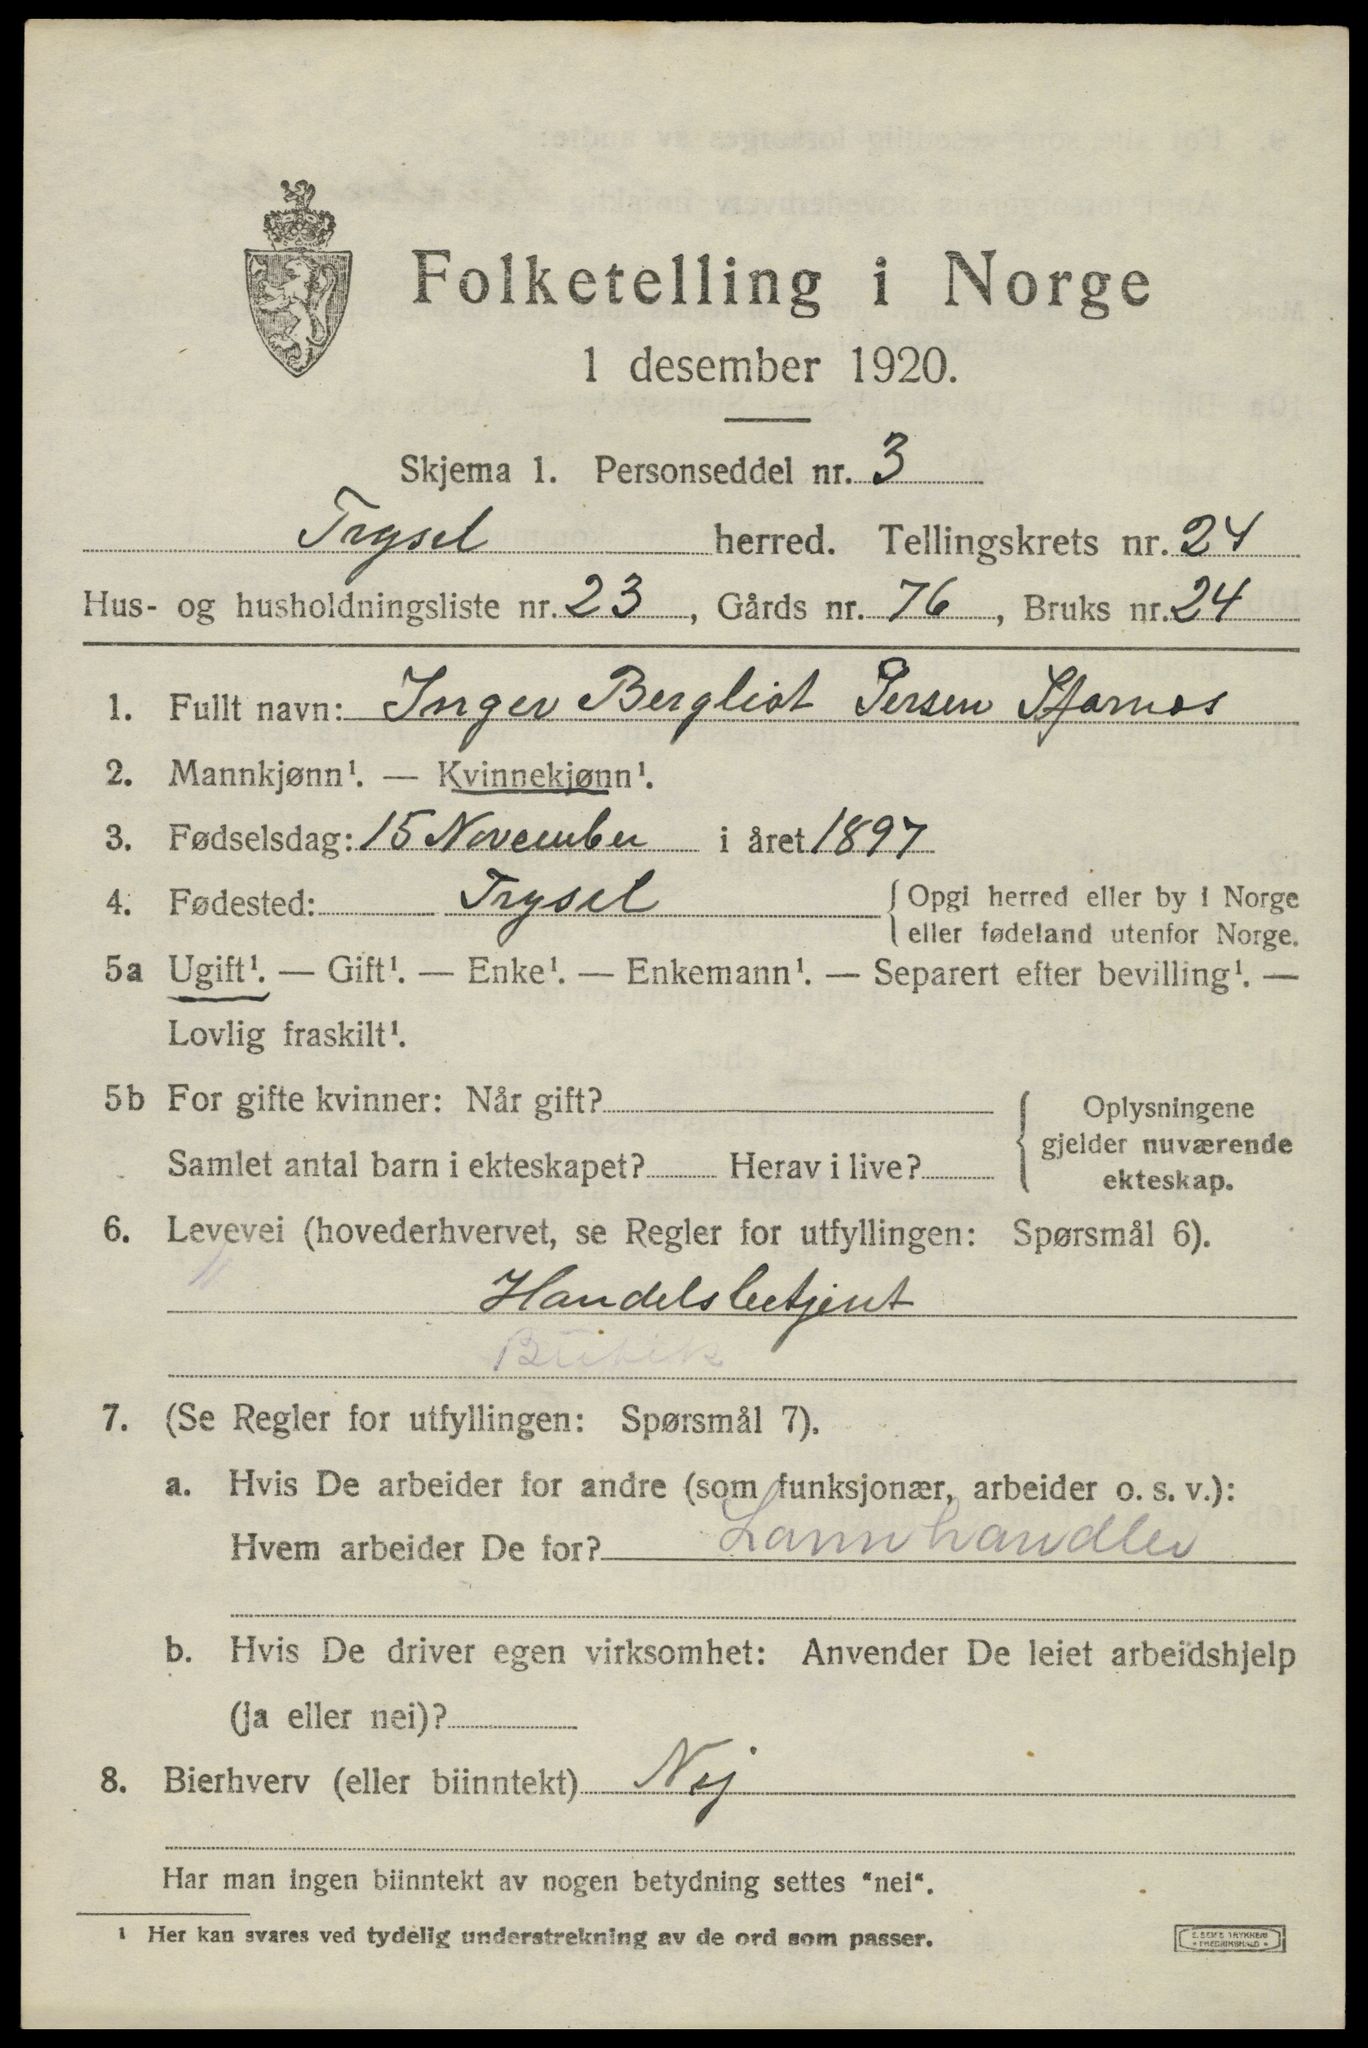 Folketelling i Norge
1 desember 1920.
Skjema 1. Personseddel nr. 3
Trysel herred. Tellingskrets nr. 24
Hus- og husholdningsliste nr. 23, Gårds nr. 76, Bruks nr. 24
1. Fullt navn: Inger Bergliot Persen
2. Mannkjønn¹. — Kvinnekjønn¹.
3. Fødselsdag: 15 November i året 1897
4. Fødested: Trysel { Opgi herred eller by i Norge
eller fødeland utenfor Norge.
5a Ugift¹. — Gift¹. — Enke¹. — Enkemann¹. — Separert efter bevilling¹. —
Lovlig fraskilt¹.
5b For gifte kvinner: Når gift? { Oplysningene
gjelder nuværende
Samlet antal barn i ekteskapet? Herav i live?
ekteskap.
6. Levevei (hovederhvervet, se Regler for utfyllingen: Spørsmål 6).
Handelsbetjent
Butikk
7. (Se Regler for utfyllingen: Spørsmål 7).
a. Hvis De arbeider for andre (som funksjonær, arbeider o. s. v.):
Hvem arbeider De for? Lannhandler
b. Hvis De driver egen virksomhet: Anvender De leiet arbeidshjelp
(ja eller nei)?
8. Bierhverv (eller biinntekt) Nej
Har man ingen biinntekt av nogen betydning settes "nei".
¹ Her kan svares ved tydelig understrekning av de ord som passer.